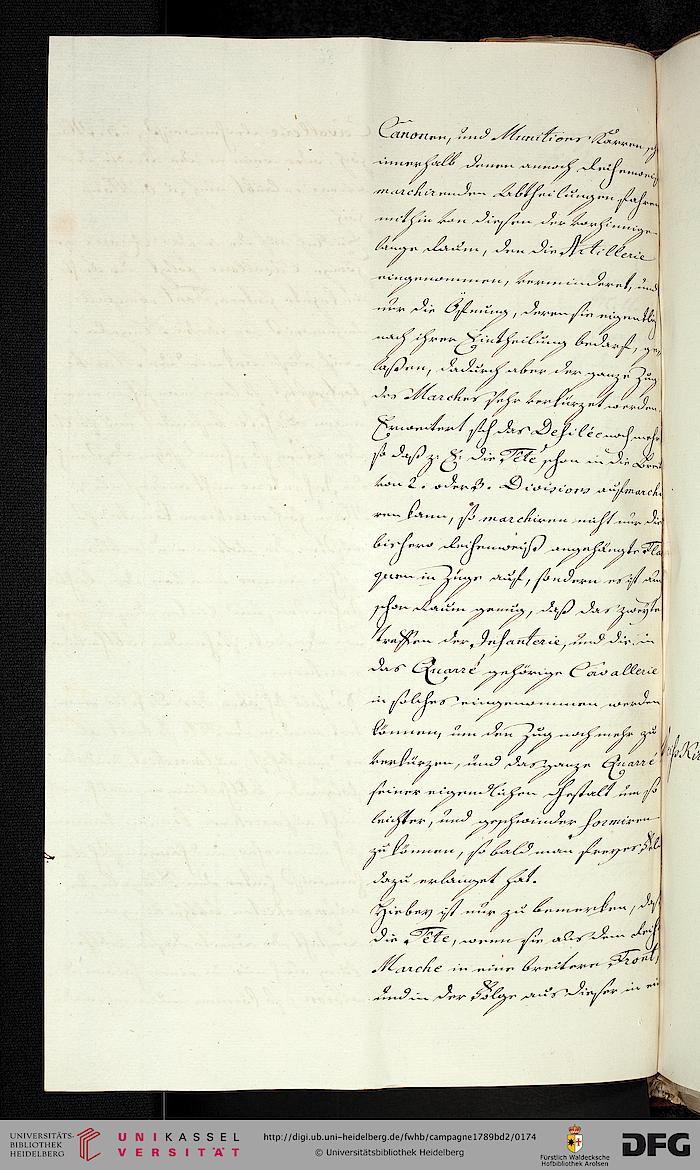 Canonen, und Munitions Karren, sich
innerhalb denen annoch Reihenweis
marchirenden Abtheilungen fahren
mithin von diesen der vorhinnige
lange Raum, den die Artillerie
eingenommen, verminderet, und
nur die Öfnung, deren sie eigentlich
nach ihrer Eintheilung bedarf, ge-
laßen, dadurch aber der ganze Zug
des Marches sehr verkürzet werden.
Erweitert sich das Defilée noch mehr
so daß z. E. die Tête schon in die Breite
von 2. oder 3. Divisions aufmarchi
ren kann, so marchiren nicht nur die
bishero Reihenweiß angehängte Fla
quen in Zuge auf, sondern es ist auch
schon Raum genug, daß das zweyte
Treffen der Infanterie, und die in
das Quarré gehörige Cavallerie
in solches eingenommen werden
können, um den Zug noch mehr zu
verkürzen, und das ganze Quarré
seiner eigendlichen Gestalt um so
leichter, und geschwinder formiren
zu können, so bald man freyes Feld
dazu erlanget hat.
Hiebey ist nur zu bemerken, daß
die Tête, wenn sie aus dem Reihen
Marche in eine breitere Front,
und in der Folge aus dieser in ein
UNIVERSITÄTS-
BIBLIOTHEK
HEIDELBERG
UNIKASSEL
VERSITÄT
http://digi.ub.uni-heidelberg.de/fwhb/campagne1789bd2/0174
© Universitätsbibliothek Heidelberg
Fürstlich Waldecksche
Hofbibliothek Arolsen
DFG